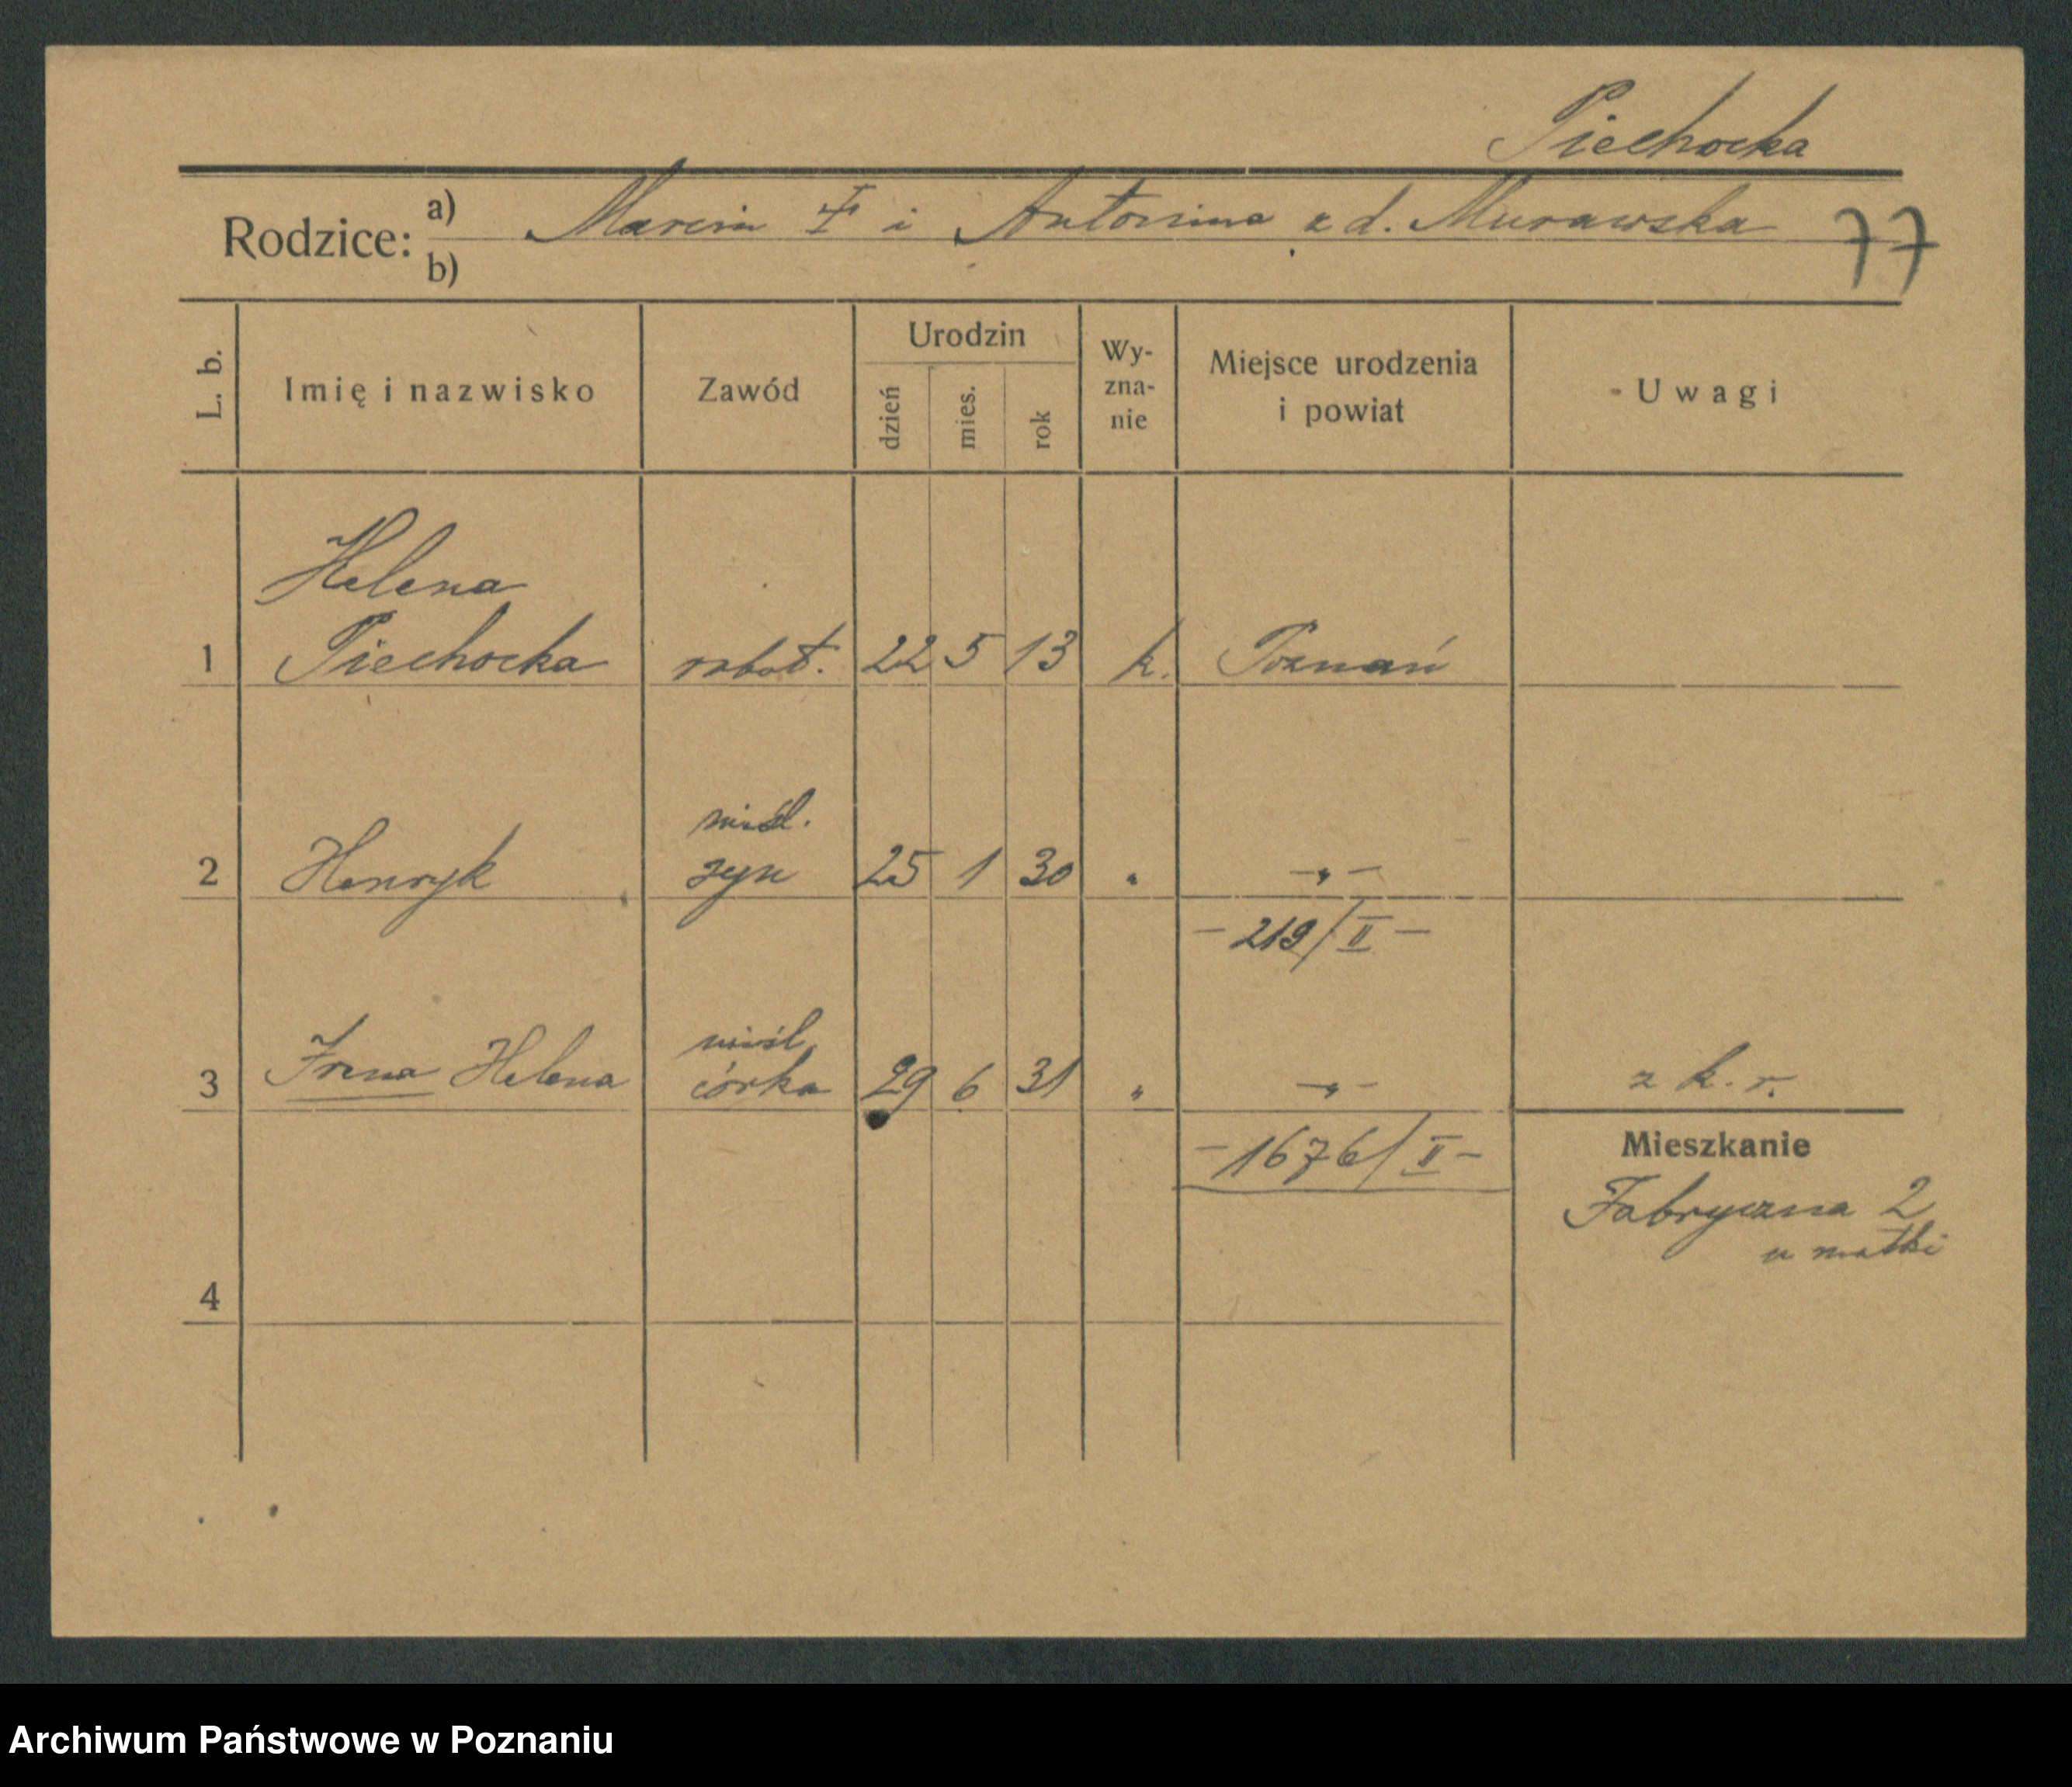 Piechocka
Rodzice: a) Marcin † i Antonina z d. Murawska 77
b)
L. b. Imię i nazwisko Zawód Urodzin dzień mies. rok Wy-zna-nie Miejsce urodzenia i powiat Uwagi
Helena
1 Piechocka robot. 22 5 13 k. Poznań
nieśl.
2 Henryk syn 25 1 30 " -"-
- 219/II -
nieśl.
3 Irena Helena córka 29 6 31 " -"- z k. r.
- 1676/II -
Mieszkanie
Fabryczna 2
u matki
4
Archiwum Państwowe w Poznaniu